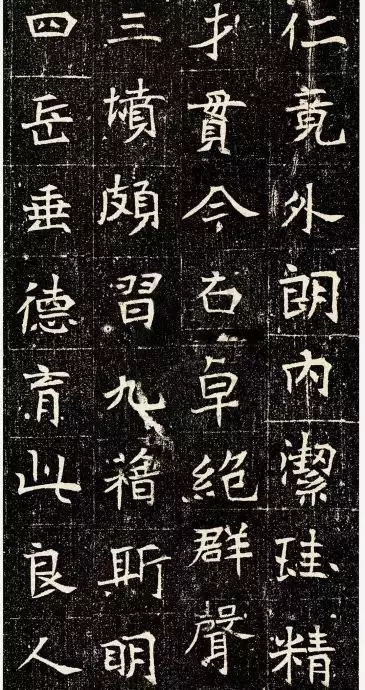 仁竟外朗內潔珪精
才貫今古卓絕群聲
三墳頗習九籍斯明
四岳垂德育此良人